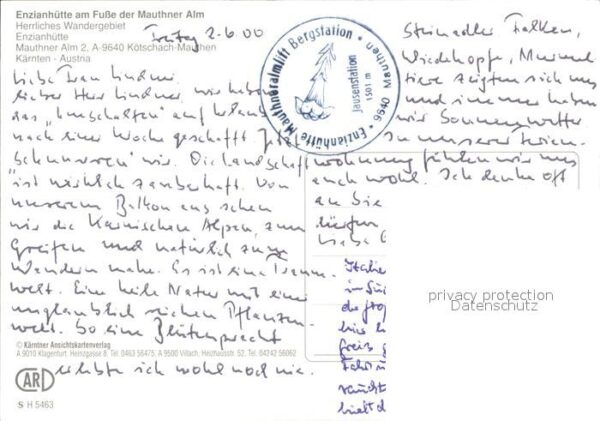 Enzianhütte am Fuße der Mauthner Alm
Herrliches Wandergebiet
Enzianhütte
Mauthner Alm 2, A-9640 Kötschach-Mauthen
Kärnten - Austria
Freitag 2.6.00
Enzianhütte Mauthneralmlift Bergstation
Jausenstation
1501 m
9640 Mauthen
Liebe Frau Lindner,
lieber Herr Lindner wir haben
das "Umschalten" auf Urlaub
nach einer Woche geschafft. Jetzt
"schnurren" wir. Die Landschaft
ist wirklich zauberhaft. Von
unserem Balkon aus sehen
wir die Karnischen Alpen, zum
Greifen und natürlich zum
Wandern nahe. Es ist eine Traum-
welt. Eine heile Natur mit einer
unglaublich reichen Pflanzen-
welt. So eine Blütenpracht
erlebte ich wohl noch nie.
Steinadler, Falken,
Wiedehopfe, Murmel
tiere zeigten sich uns
und immer haben
wir Sonnenwetter
In unserer Ferien-
wohnung fühlen wir uns
auch wohl. Ich denke oft
an Sie
Italie
in Sü
die
hier
zu
privacy protection
Datenschutz
© Kärntner Ansichtskartenverlag
A 9010 Klagenfurt, Heinzgasse 8, Tel. 0463 56475, A 9500 Villach, Heizhausstr. 52, Tel. 04242 56062
CARD
S H 5463